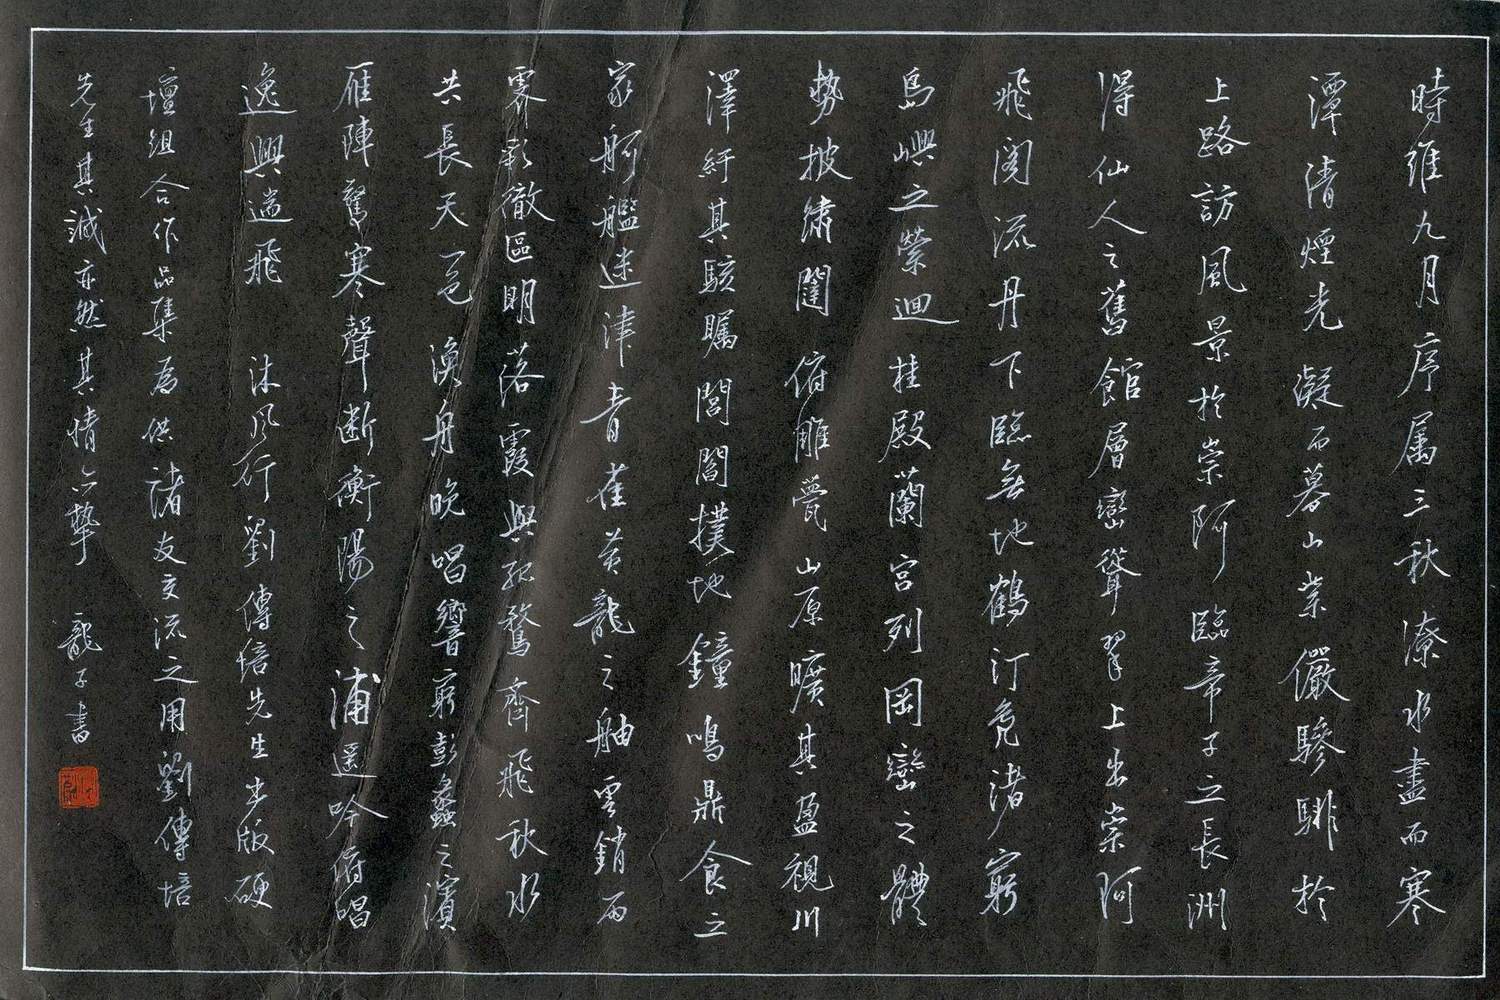 時維九月序属三秋潦水盡而寒
潭清煙光凝而暮山紫儼驂騑於
上路訪風景於崇阿臨帝子之長洲
得仙人之舊館層巒聳翠上出崇阿
飛閣流丹下臨無地鶴汀鳧渚窮
島嶼之縈迴桂殿蘭宮列岡巒之體
勢披繡闥俯雕甍山原曠其盈視川
澤紆其駭矚閭閻撲地鐘鳴鼎食之
家舸艦迷津青雀黃龍之舳雲銷雨
霽彩徹區明落霞與孤鶩齊飛秋水
共長天一色漁舟晚唱響窮彭蠡之濱
雁陣驚寒聲断衡陽之浦遥吟俯唱
逸興遄飛 沐風行劉傳培先生出版硬
壇組合作品集為供諸友交流之用劉傳培
先生其誠亦然其情亦摯 龍子書